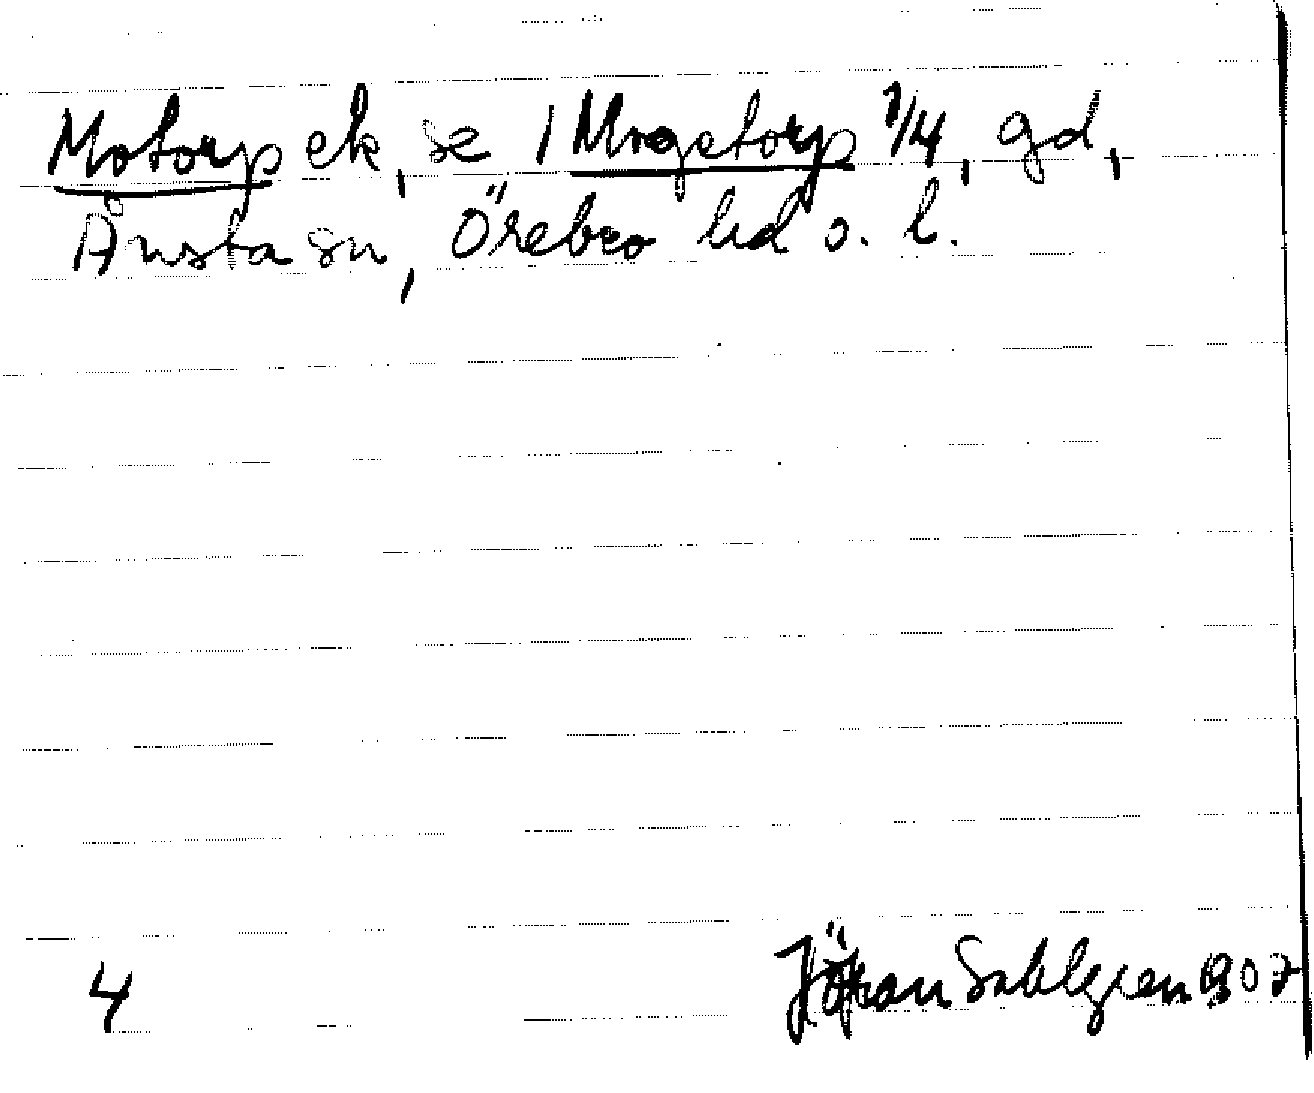 Motorp ek, se 1 Mogetorp 1/4, gd,
Ånsta sn, Örebro hd o. l.
4 Jöran Sahlgren 1907